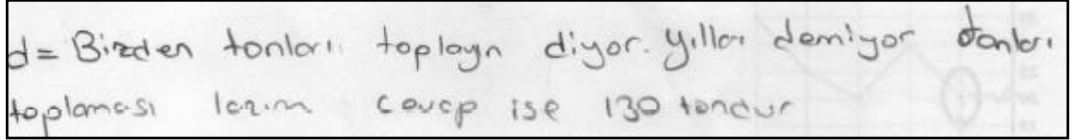 d= Bizden tonları toplayn diyor. Yıllar demiyor tonları
toplaması lazım cevap ise 130 tondur